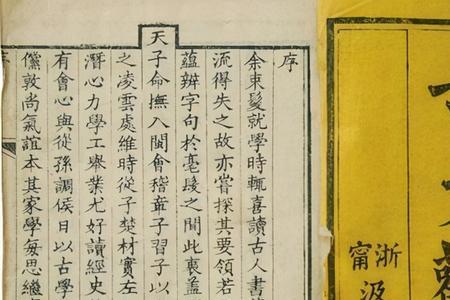 序
余束髮就學時輒喜讀古人書
流得失之故亦嘗探其要領若
蘊辨字句於毫髮之間此衷蓋
天子命撫八閩會稽章子習子以
之凌雲處維時從子楚材實左
潛心力學工舉業尤好讀經史
有會心與從孫調侯日以古學
儻敦尚氣誼本其家學每思繼
序
浙
甯
汲